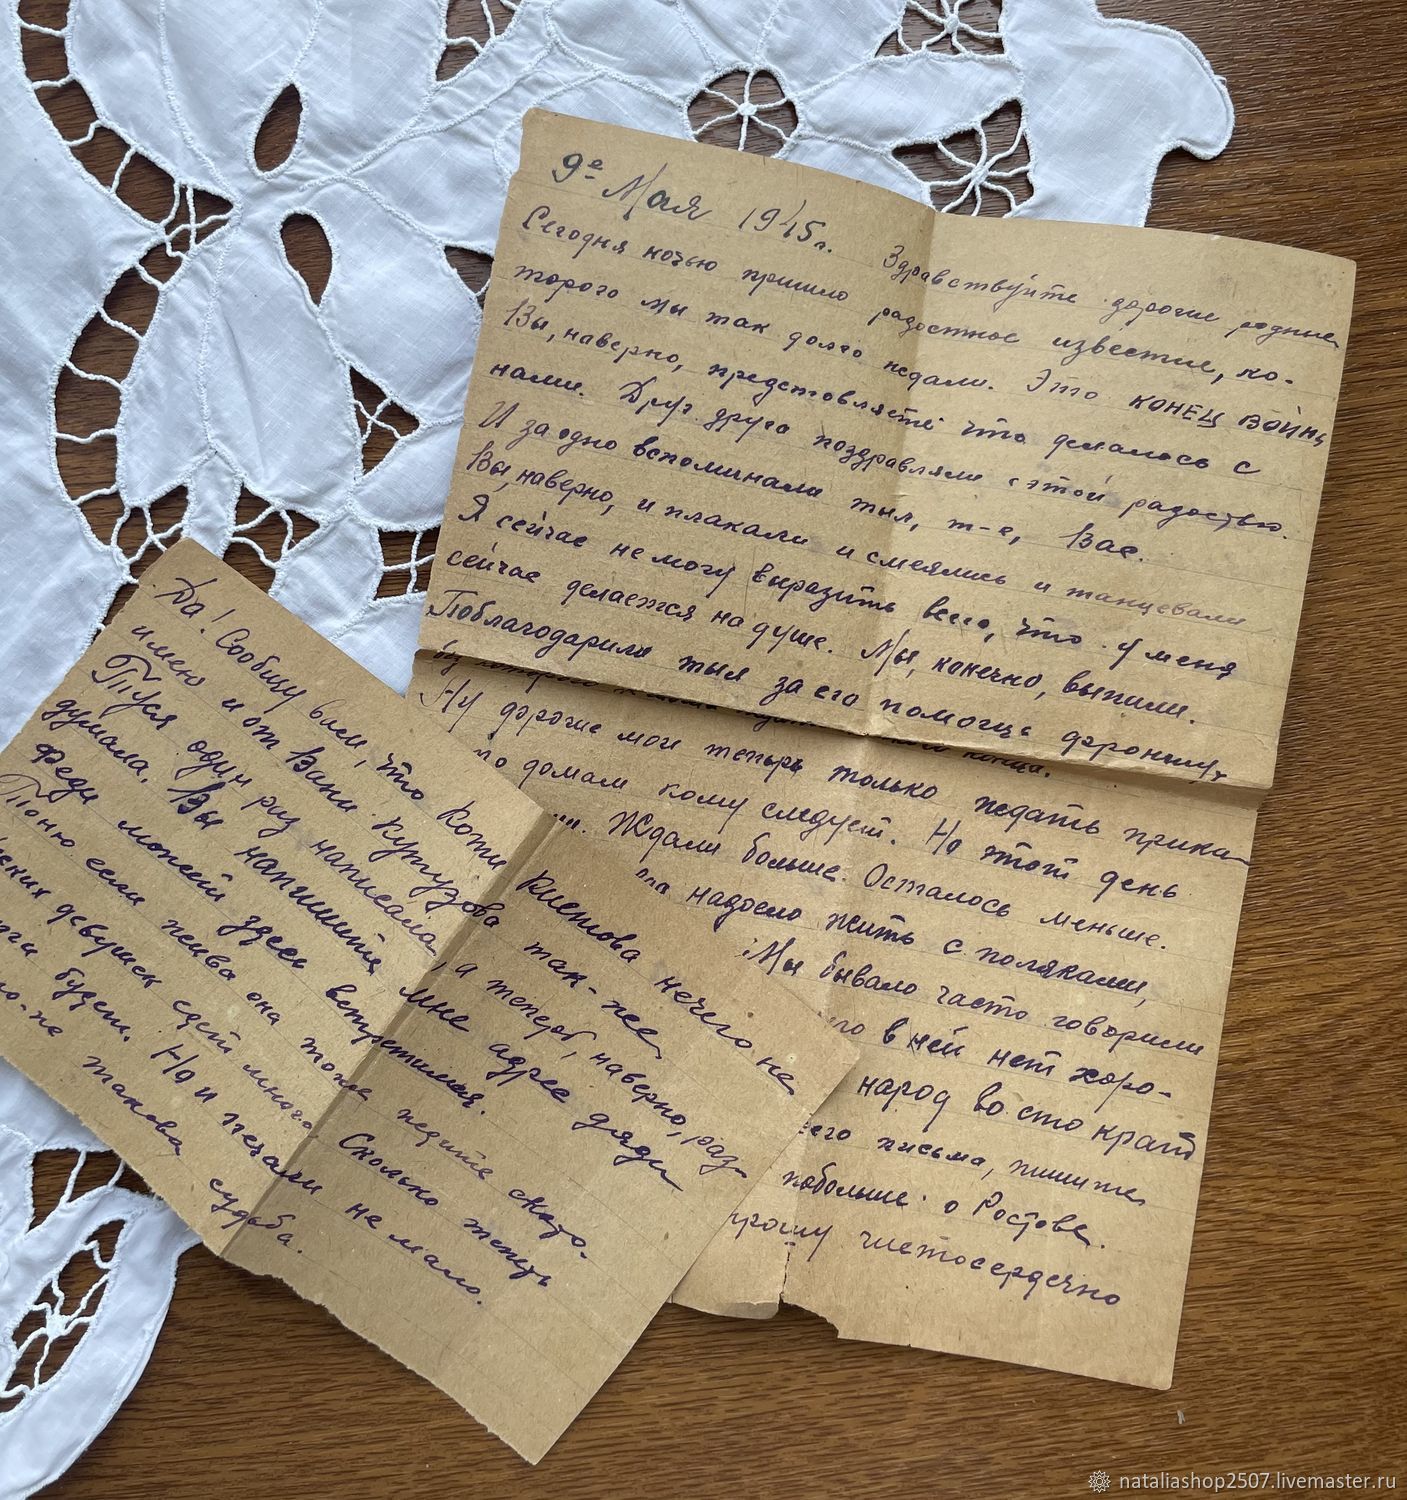 9е Мая 1945г. Здравствуйте дорогие родные
Сегодня ночью пришло радостное известие, ко-
торого мы так долго ждали. Это КОНЕЦ ВОЙНЫ
Вы, наверно, представляете что делалось с
нами. Друг друга поздравляли с этой радостью.
И заодно вспоминали тыл, т-е, Вас.
Вы, наверно, и плакали и смеялись и танцевали
Я сейчас не могу выразить всего, что у меня
сейчас делается на душе. Мы, конечно, выпили.
Поблагодарили тыл за его помощь фронту,
конца.
Ну дорогие мои теперь только ждать прика-
по домам кому следует. Но этот день
Ждали больше. Осталось меньше.
надоело жить с поляками,
Мы бывало часто говорили
в ней нет хоро-
народ во сто крат
письма, пишите
побольше о Ростове.
прошу чистосердечно
Да! Сообщу вам, что Коти Кистова нечего не
имею и от Вани Кургузова так-же
Туся один раз написала, а теперь, наверно, раз-
думала. Вы напишите мне адрес дяди
Феди может здесь встретимся.
Тоню если жива она тоже ждите скоро-
девушек едет много. Сколько теперь
будет. Но и печали не мало.
такова судьба.
nataliashop2507.livemaster.ru